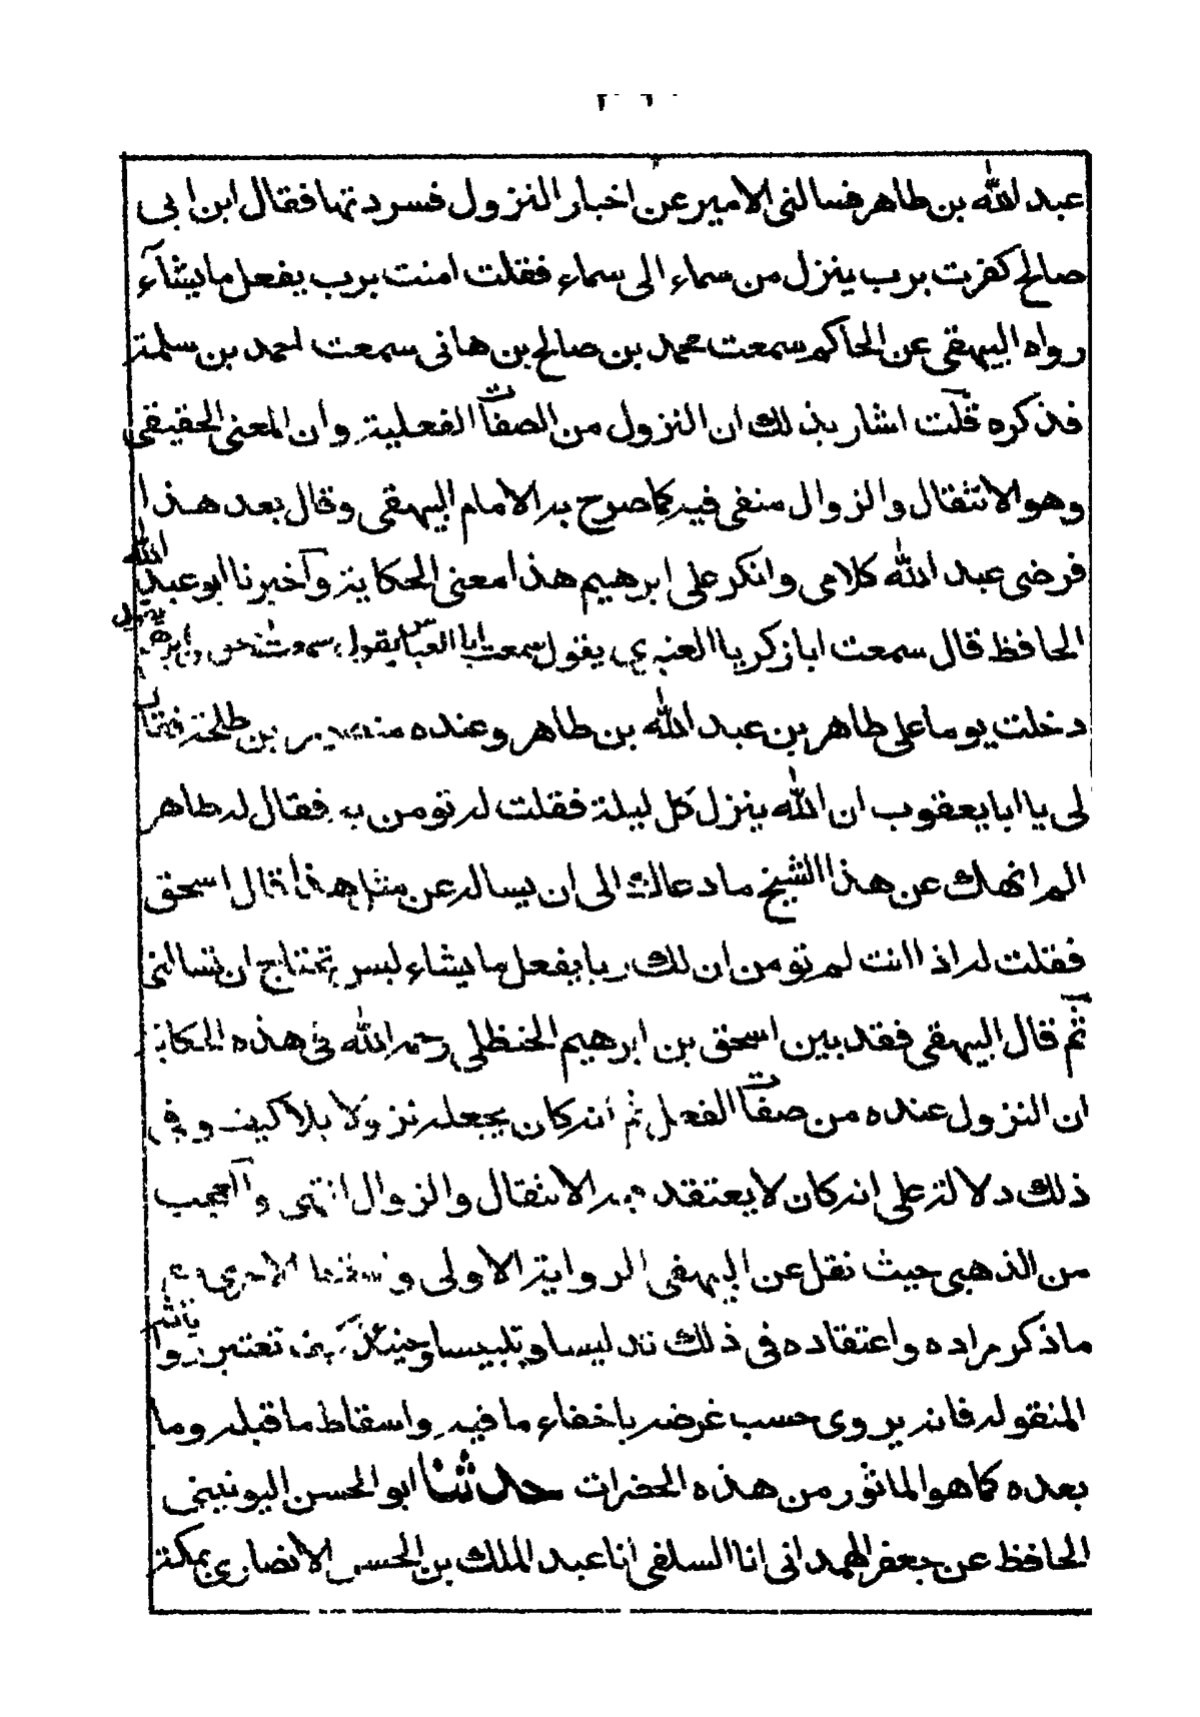 عبد الله بن طاهر فسالنى الامير عن اخبار النزول فسردتها فقال ابن ابى
صالح كفرت برب ينزل من سماء الى سماء فقلت امنت برب يفعل ما يشآء
رواه البيهقى عن الحاكم سمعت محمد بن صالح بن هانى سمعت احمد بن سلمة
فذكره قلت اشار بذلك ان النزول من الصفات الفعلية وان المعنى الحقيقى
وهو الانتقال والزوال منفى فيه كما صرح به الامام البيهقى وقال بعد هذا
فرضى عبد الله كلامى وانكر على ابرهيم هذا معنى الحكاية وآخبرنا ابو عبد الله
الحافظ قال سمعت ابا زكريا العنبرى يقول سمعت ابا العباس يقول سمعت اسحق بن ابرهيم يقول
دخلت يوما على طاهر بن عبد الله بن طاهر وعنده منصور بن طلحة فقال
لى يا ابا يعقوب ان الله ينزل كل ليلة فقلت له تومن به فقال له طاهر
الم انهك عن هذا الشيخ ما دعاك الى ان يساله عن مثل هذا قال اسحق
فقلت له اذا انت لم تومن ان لك ربا يفعل ما يشاء ليس تحتاج ان تسالنى
ثم قال البيهقى فقد بين اسحق بن ابرهيم الحنظلى رحمه الله فى هذه الحكاية
ان النزول عنده من صفات الفعل ثم انه كان يجعله نزولا بلا كيف وفى
ذلك دلالة على انه كان لا يعتقد فيه الانتقال والزوال انتهى وآلعجب
من الذهبى حيث نقل عن البيهقى الرواية الاولى و
ما ذكر مراده واعتقاده فى ذلك تدليسا وتلبيسا وحينئذ تعتبر
المنقوله فانه يروى حسب غرضه باخفاء ما فيه واسقاط ما قبله وما
بعده كما هو الماثور من هذه الحضرات حدثنا ابو الحسن اليونينى
الحافظ عن جعفر الهمدانى انا السلفى انا عبد الملك بن الحسن الانصارى بمكة